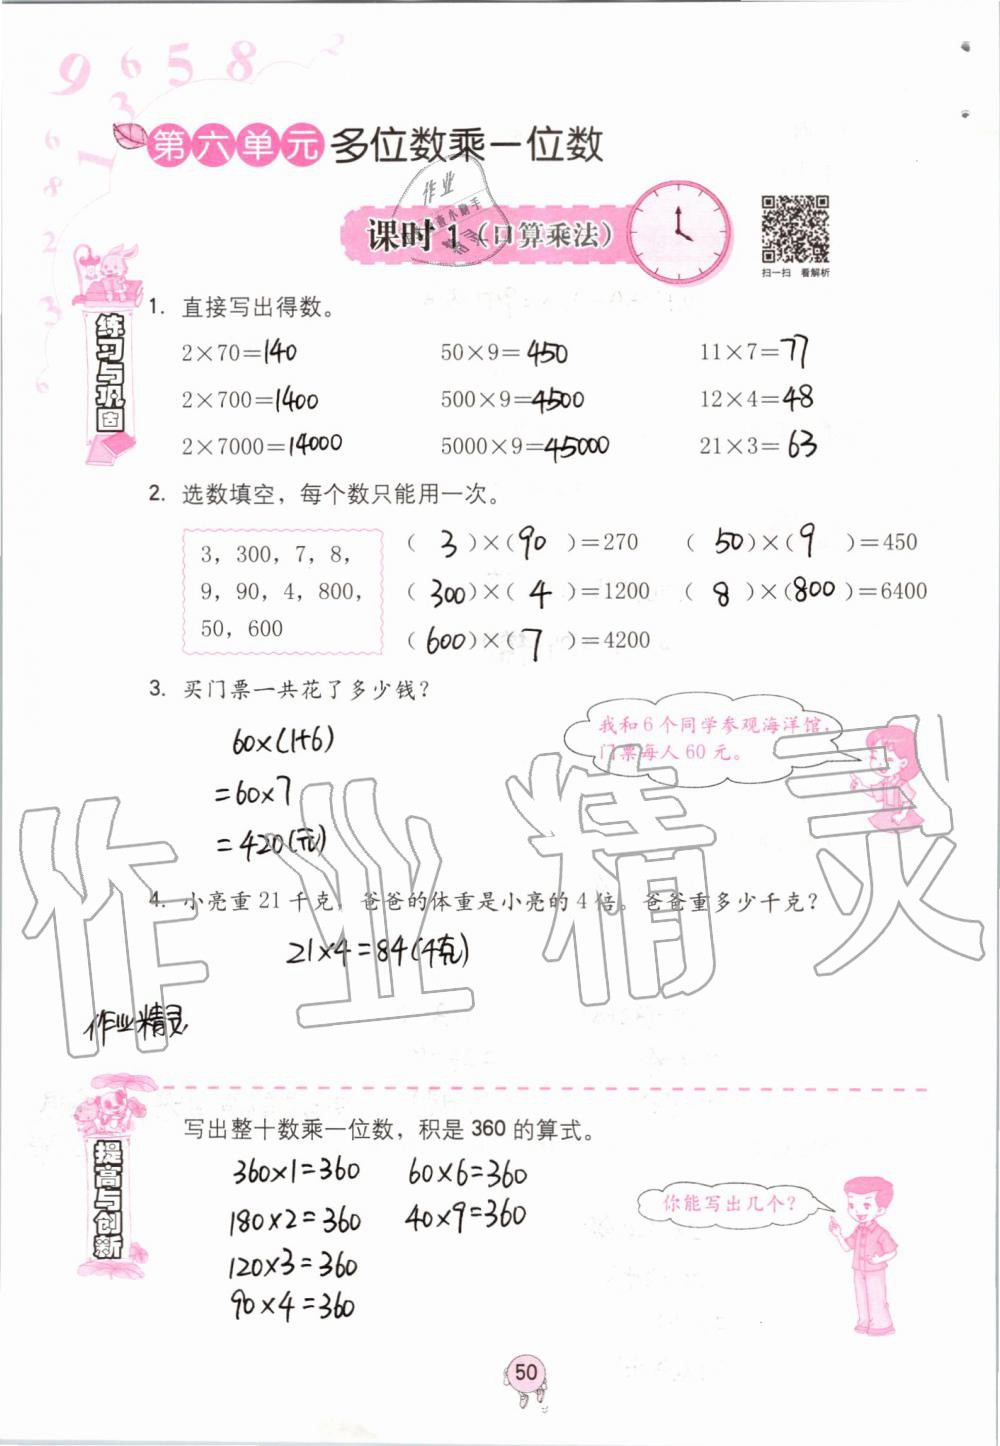 9 6 5 8 2
第六单元 多位数乘一位数
课时1（口算乘法）
扫一扫 看解析
练习与巩固
1. 直接写出得数。
2×70=140 50×9=450 11×7=77
2×700=1400 500×9=4500 12×4=48
2×7000=14000 5000×9=45000 21×3=63
2. 选数填空，每个数只能用一次。
3，300，7，8，
9，90，4，800，
50，600
（3）×（90）=270 （50）×（9）=450
（300）×（4）=1200 （8）×（800）=6400
（600）×（7）=4200
3. 买门票一共花了多少钱？
我和6个同学参观海洋馆，
门票每人60元。
60×(1+6)
=60×7
=420(元)
4. 小亮重21千克，爸爸的体重是小亮的4倍。爸爸重多少千克？
21×4=84(千克)
作业精灵
作业精灵
提高与创新
写出整十数乘一位数，积是360的算式。
360×1=360 60×6=360
180×2=360 40×9=360
120×3=360
90×4=360
你能写出几个？
50